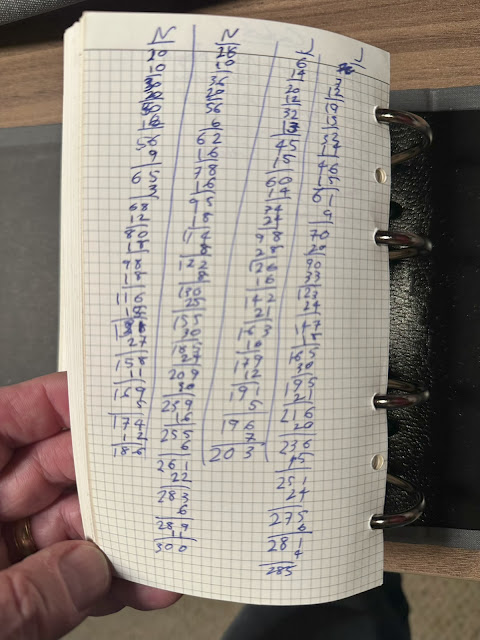 N
20
10
30
20
50
56
9
65
3
68
12
80
18
98
18
116
27
158
11
169
5
174
12
186
N
26
10
36
20
56
6
62
16
78
16
95
18
122
8
130
25
155
30
185
27
209
30
259
16
255
6
261
22
283
6
289
11
300
J
6
14
20
12
32
13
45
15
60
14
74
24
98
28
126
16
142
21
163
16
179
12
191
5
196
7
203
J
7
12
19
13
32
14
46
15
61
9
70
20
90
33
123
24
147
18
165
30
195
21
216
20
236
15
251
24
275
6
281
4
285